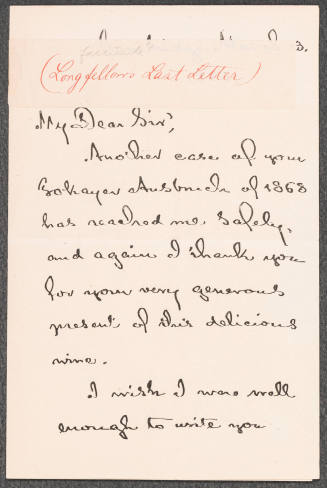 3.
(Longfellows Last Letter)
My Dear Sir,
Another case of your
Tokayer Ausbruch of 1868
has reached me safely,
and again I thank you
for your very generous
present of this delicious
wine.
I wish I were well
enough to write you